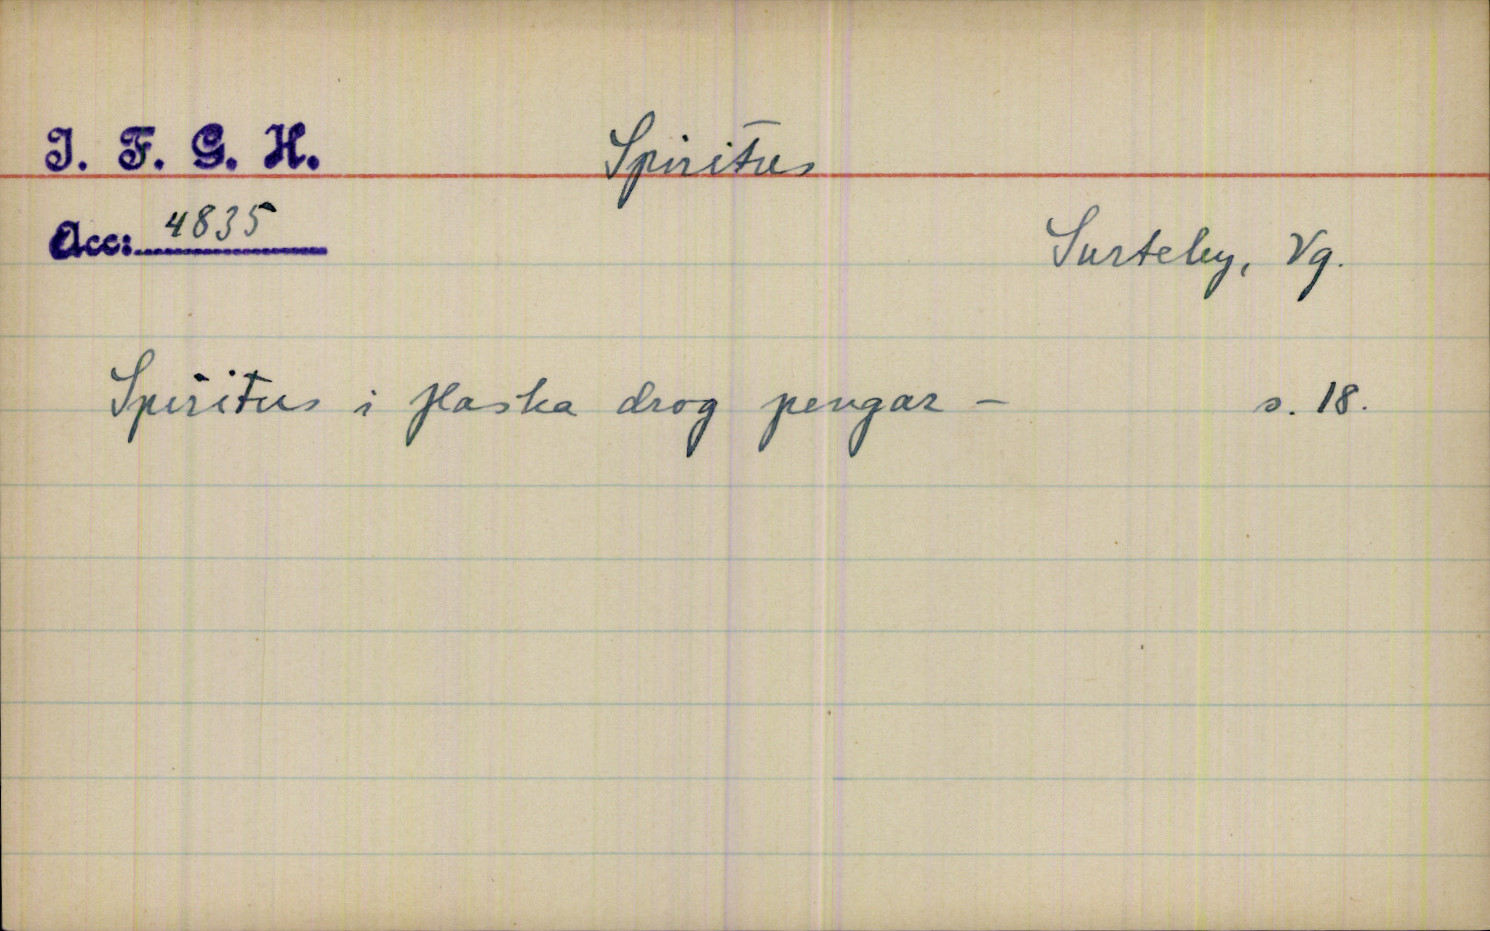 I. F. G. H.
Spiritus
Acc: 4835
Surteby, Vg.
Spiritus i flaska drog pengar – s. 18.